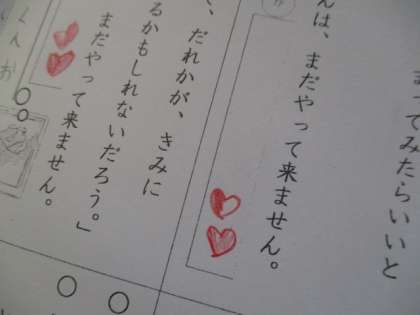 ってみたらいいと
んは、まだやって来ません。
、だれかが、きみに
るかもしれないだろう。」
まだやって来ません。